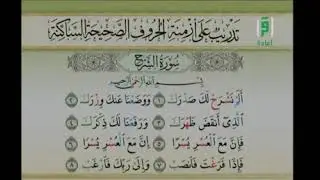 اقرأ
إعادة
تدريب على أزمنة الحروف الصحيحة الساكنة
سورة الشرح
بسم الله الرحمن الرحيم
أَلَمْ نَشْرَحْ لَكَ صَدْرَكَ ١ وَوَضَعْنَا عَنكَ وِزْرَكَ ٢
الَّذِي أَنقَضَ ظَهْرَكَ ٣ وَرَفَعْنَا لَكَ ذِكْرَكَ ٤
فَإِنَّ مَعَ الْعُسْرِ يُسْرًا ٥ إِنَّ مَعَ الْعُسْرِ يُسْرًا ٦
فَإِذَا فَرَغْتَ فَانصَبْ ٧ وَإِلَى رَبِّكَ فَارْغَب ٨